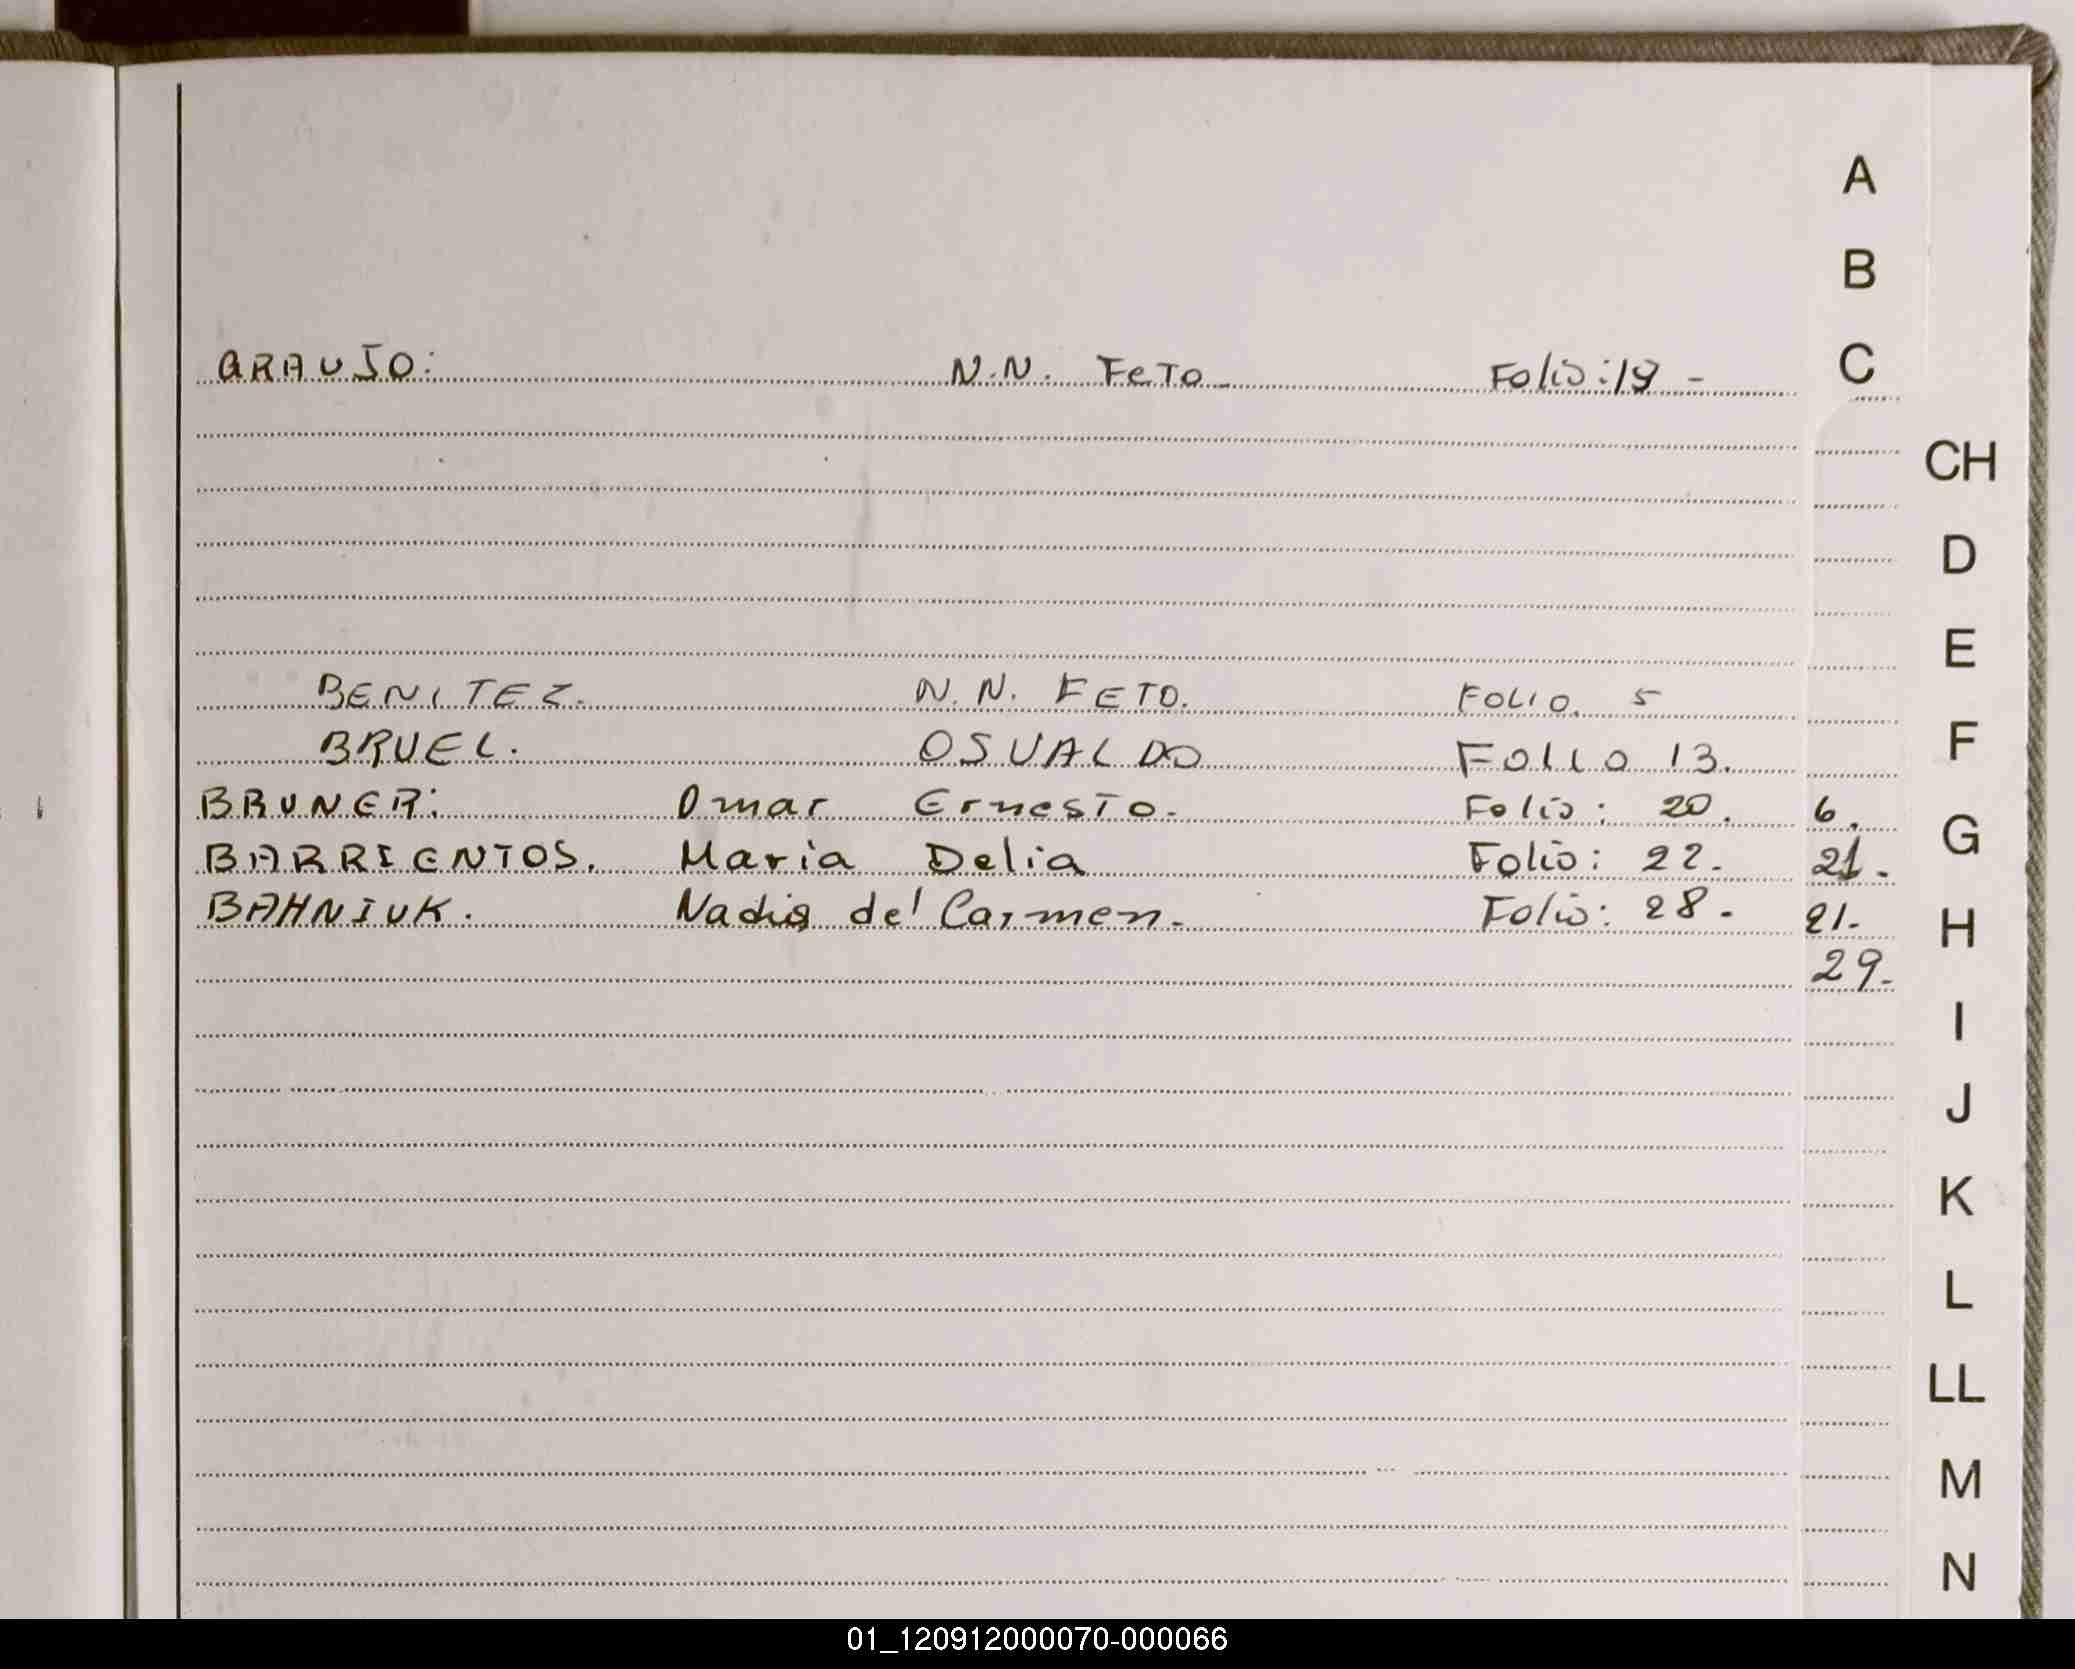 A
B
C
ARAUJO: N.N. FeTo- Folio: 19 -
CH
D
E
BENITEZ. N.N. FETO. FOLIO. 5
BRUEL. OSVALDO FOLIO 13.
F
BRUNER: Omar Ernesto. Folio: 20. 6.
BARRIENTOS. Maria Delia Folio: 22. 21.
G
BAHNIUK. Nadia del Carmen. Folio: 28. 21.
H
29.
I
J
K
L
LL
M
N
01_120912000070-000066